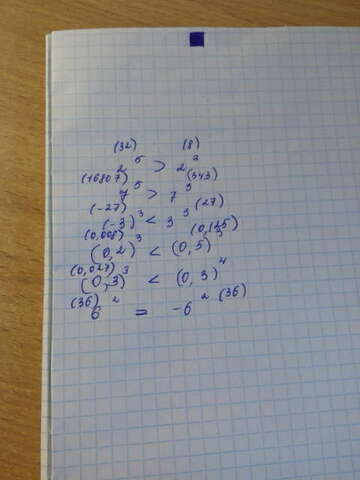 (32) (8)
2⁵ > 2³
(16807) (343)
7⁵ > 7³
(-27) (27)
(-3)³ < 3³
(0,008) (0,125)
(0,2)³ < (0,5)³
(0,027)
(0,3)³ < (0,3)⁴
(36) (36)
6² = -6²